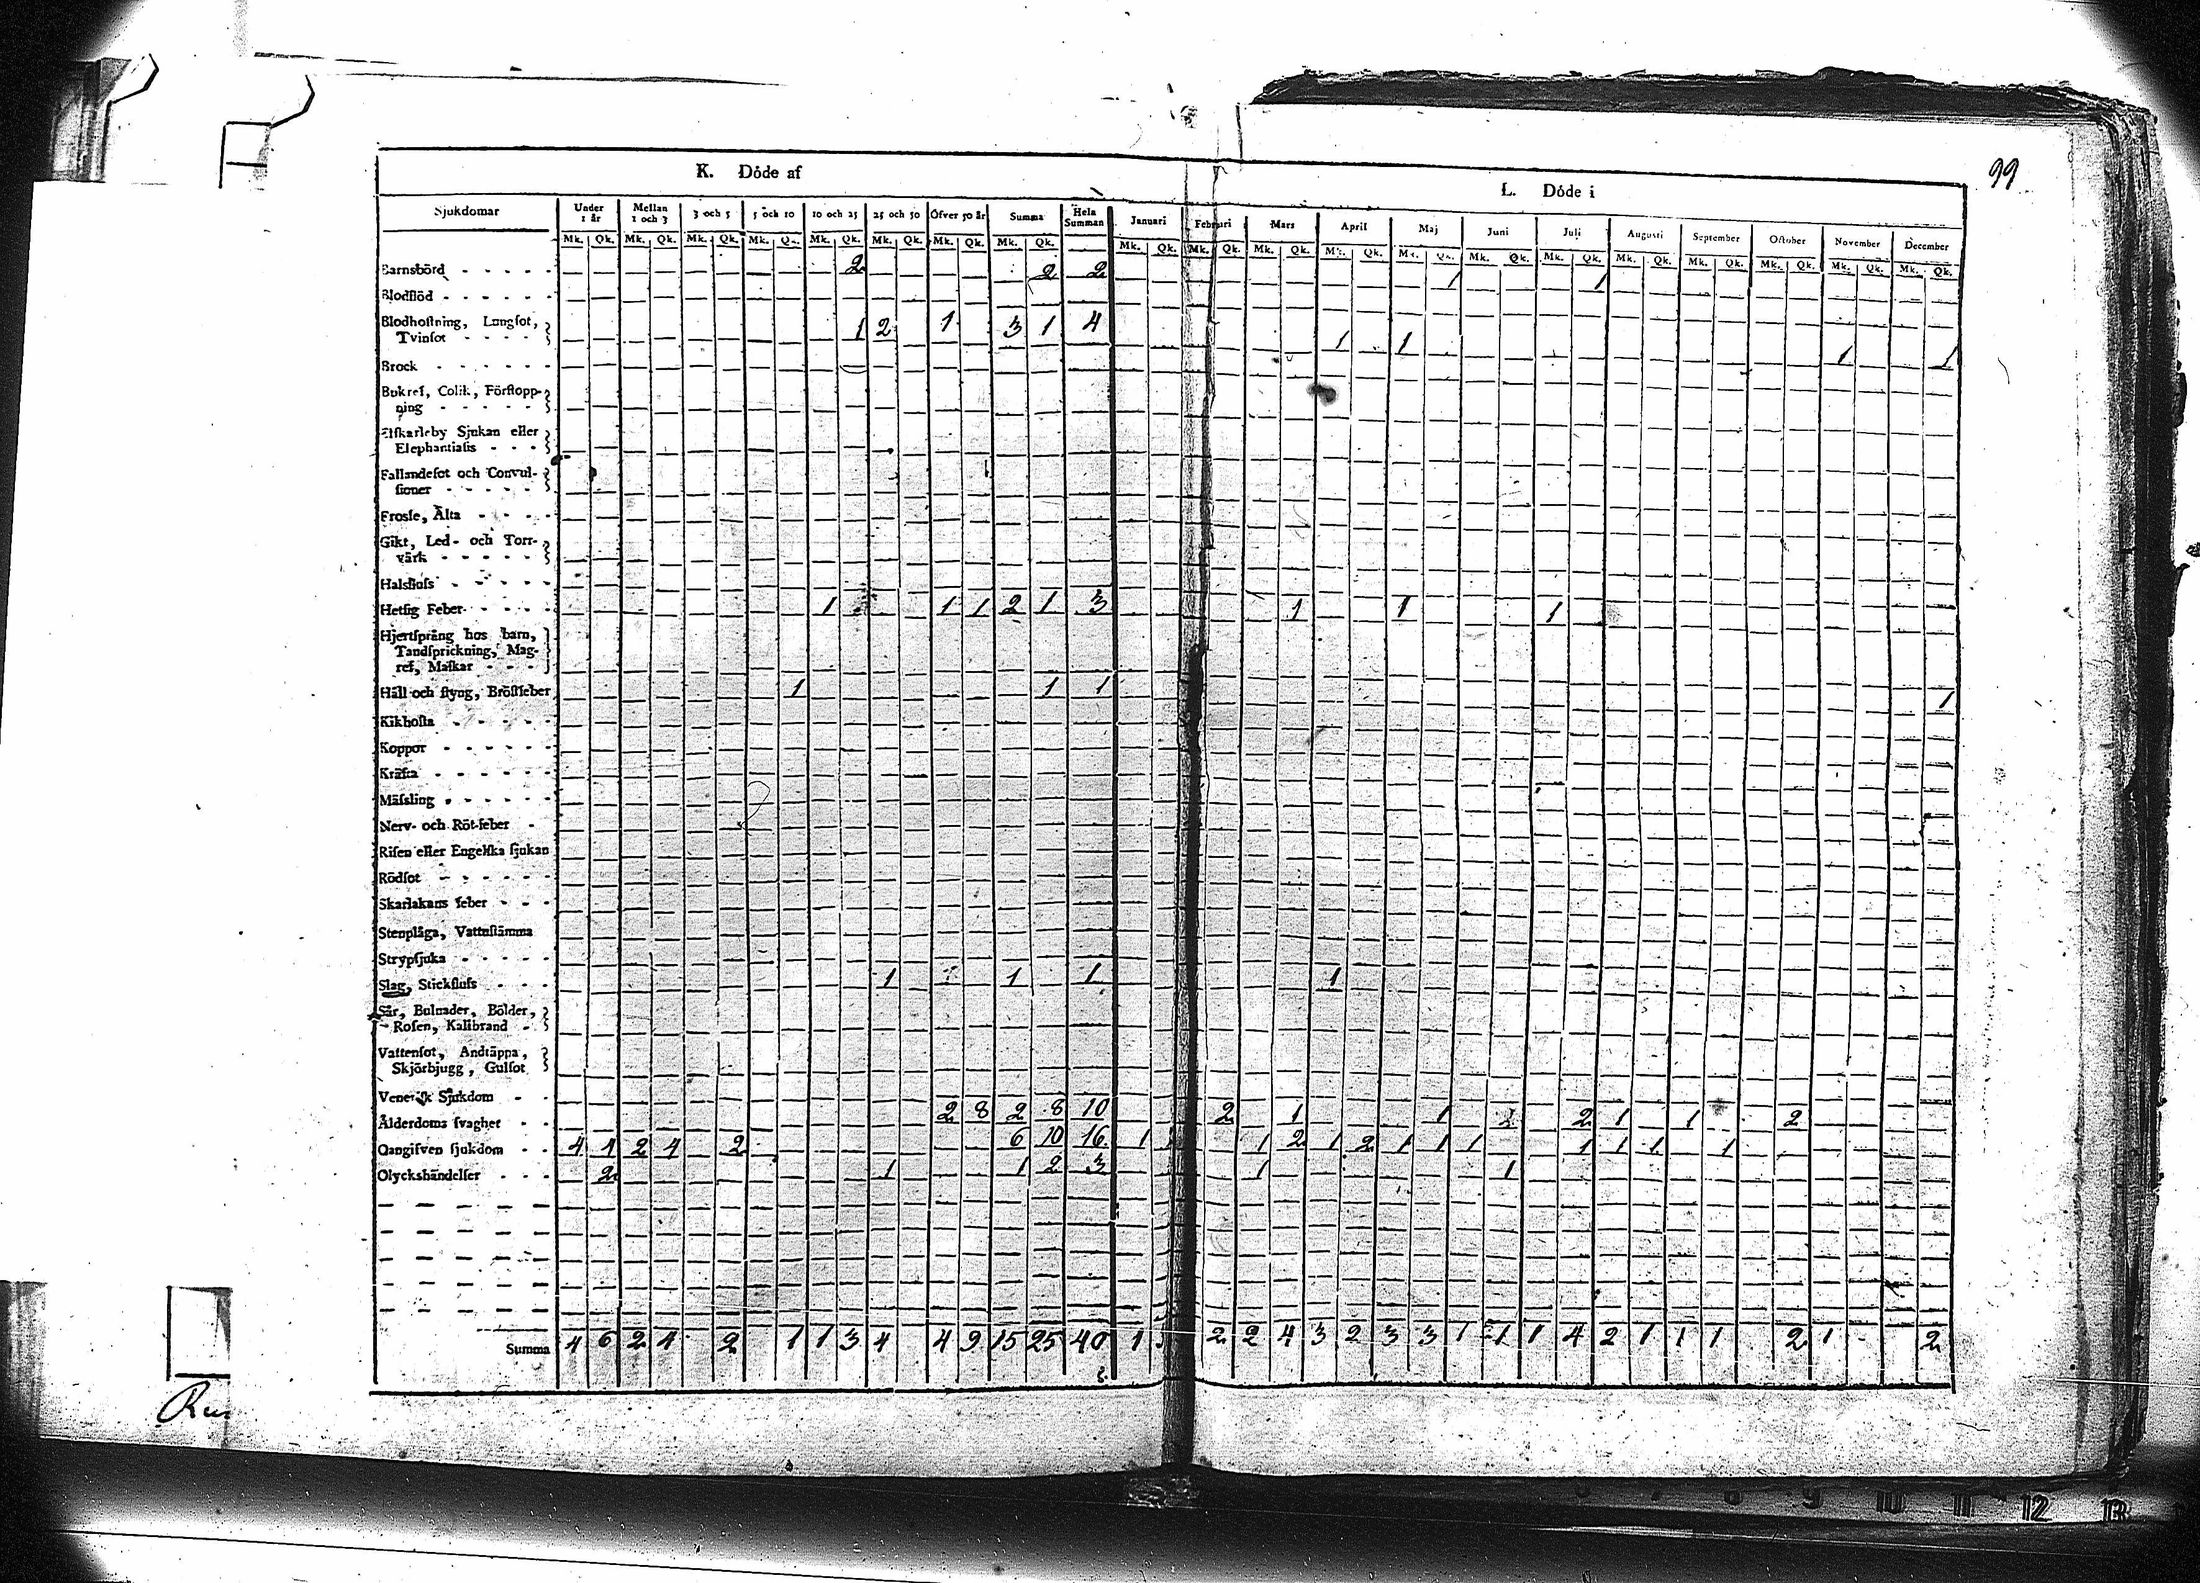 99
K. Döde af
L. Döde i
Sjukdomar Under 1 år Mellan 1 och 3 3 och 5 5 och 10 10 och 25 25 och 50 Öfver 50 år Summa Hela Summan Januari Februari Mars April Maj Juni Juli Augusti September October November December
Mk. Qk. Mk. Qk. Mk. Qk. Mk. Qk. Mk. Qk. Mk. Qk. Mk. Qk. Mk. Qk. Mk. Qk. Mk. Qk. Mk. Qk. Mk. Qk. Mk. Qk. Mk. Qk. Mk. Qk. Mk. Qk. Mk. Qk. Mk. Qk. Mk. Qk. Mk. Qk.
Barnsbörd 2 2 2 1 1
Blodflöd
Blodhoſtning, Lungſot,
Tvinſot 1 2 1 3 1 4 1 1 1 1
Brock
Bukref, Colik, Förſtopp-
ning
Elſkarleby Sjukan eller
Elephantiaſis
Fallandeſot och Convul-
ſioner
Frosſe, Älta
Gikt, Led- och Torr-
värk
Halsfluſs
Hetſig Feber 1 1 1 2 1 3 1 1 1
Hjertſprång hos barn,
Tandſprickning, Mag-
ref, Maſkar
Håll och ſtyng, Bröſtfeber 1 1 1 1
Kikhoſta
Koppor
Kräfta
Mäſsling
Nerv- och Röt-feber
Riſen eller Engelſka ſjukan
Rödſot
Skarlakans feber
Stenplåga, Vattuſtämma
Strypſjuka
Slag, Stickfluſs 1 1 1 1
Sår, Bulnader, Bölder,
Roſen, Kallbrand
Vattenſot, Andtäppa,
Skjörbjugg, Gulſot
Veneriſk Sjukdom
Ålderdoms ſvaghet 2 8 2 8 10 2 1 1 2 1 1 2
Oangifven ſjukdom 4 4 2 4 2 6 10 16 1 1 2 1 2 1 1 1 1 1 1 1
Olyckshändelſer 2 1 1 2 3 1 1
Summa 4 6 2 4 2 1 1 3 4 4 9 15 25 40 1 2 2 4 3 2 3 3 1 1 1 4 2 1 1 1 2 1 2
12 13